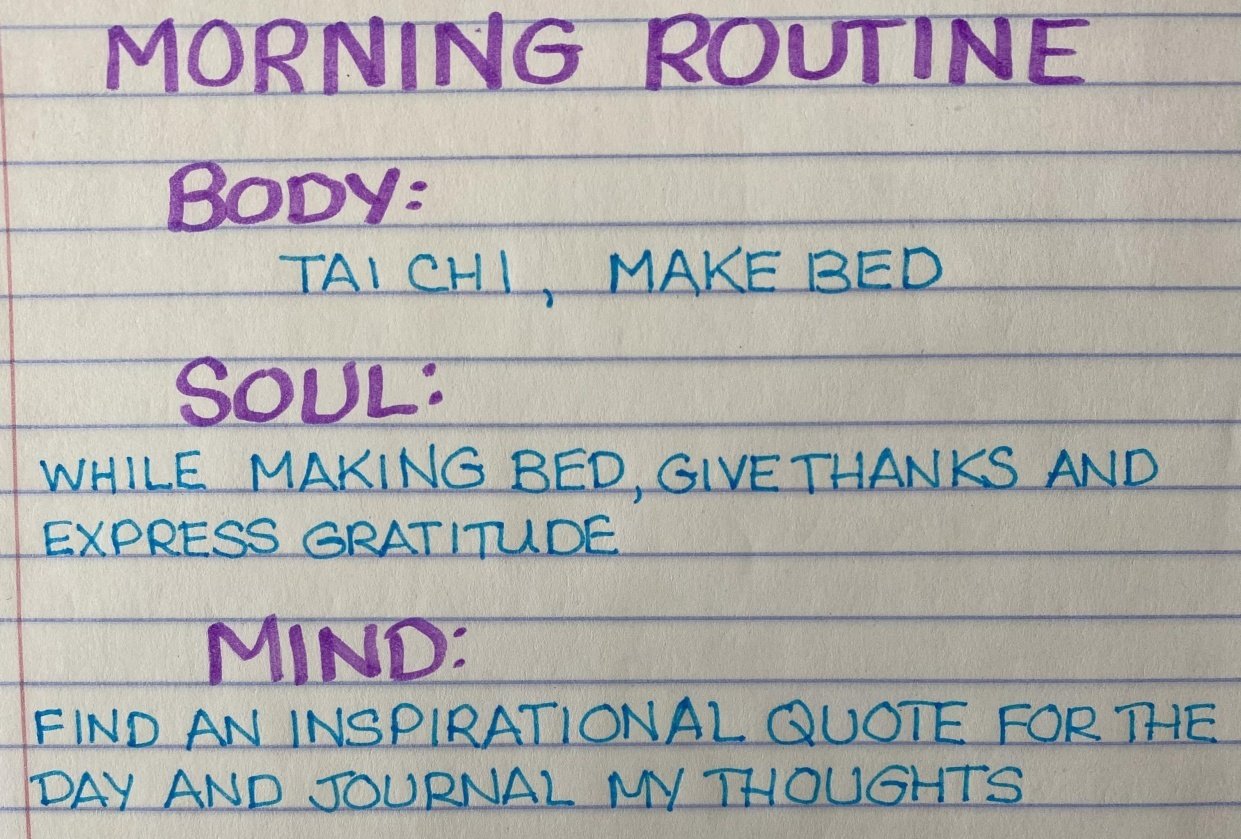 MORNING ROUTINE
BODY:
TAI CHI, MAKE BED
SOUL:
WHILE MAKING BED, GIVE THANKS AND
EXPRESS GRATITUDE
MIND:
FIND AN INSPIRATIONAL QUOTE FOR THE
DAY AND JOURNAL MY THOUGHTS